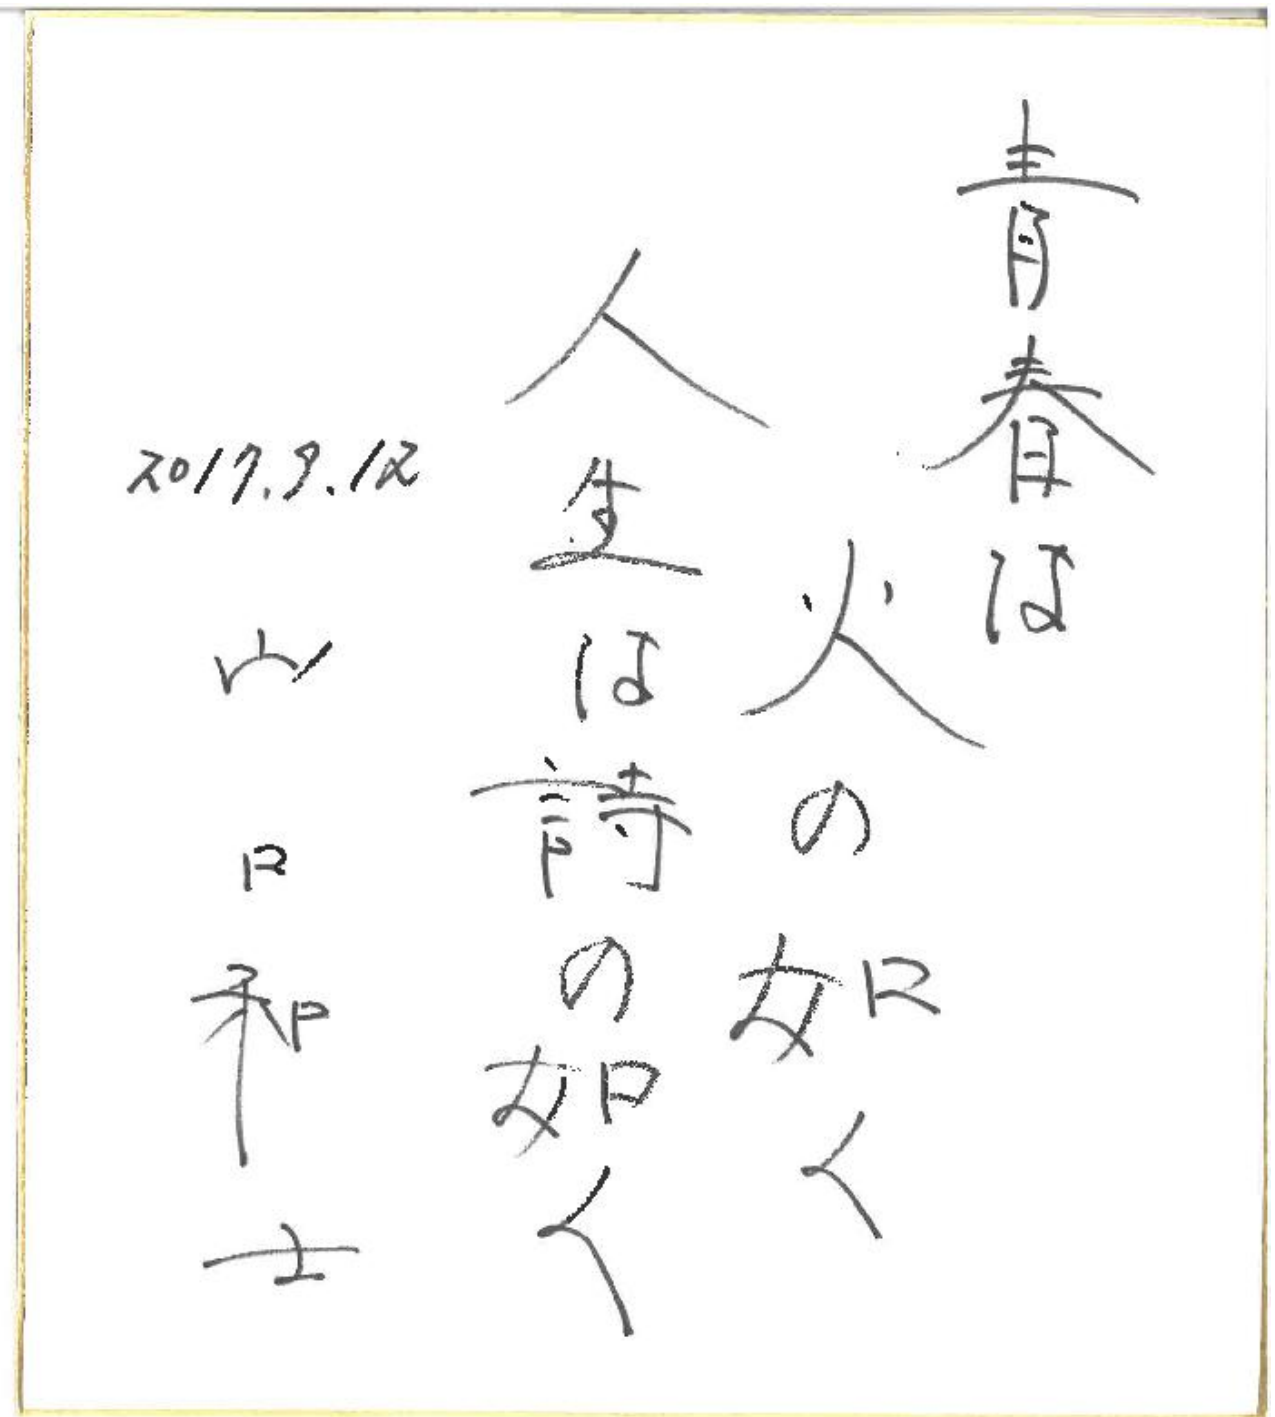 青春は
火の如く
人生は詩の如く
2017.9.12
山口和士